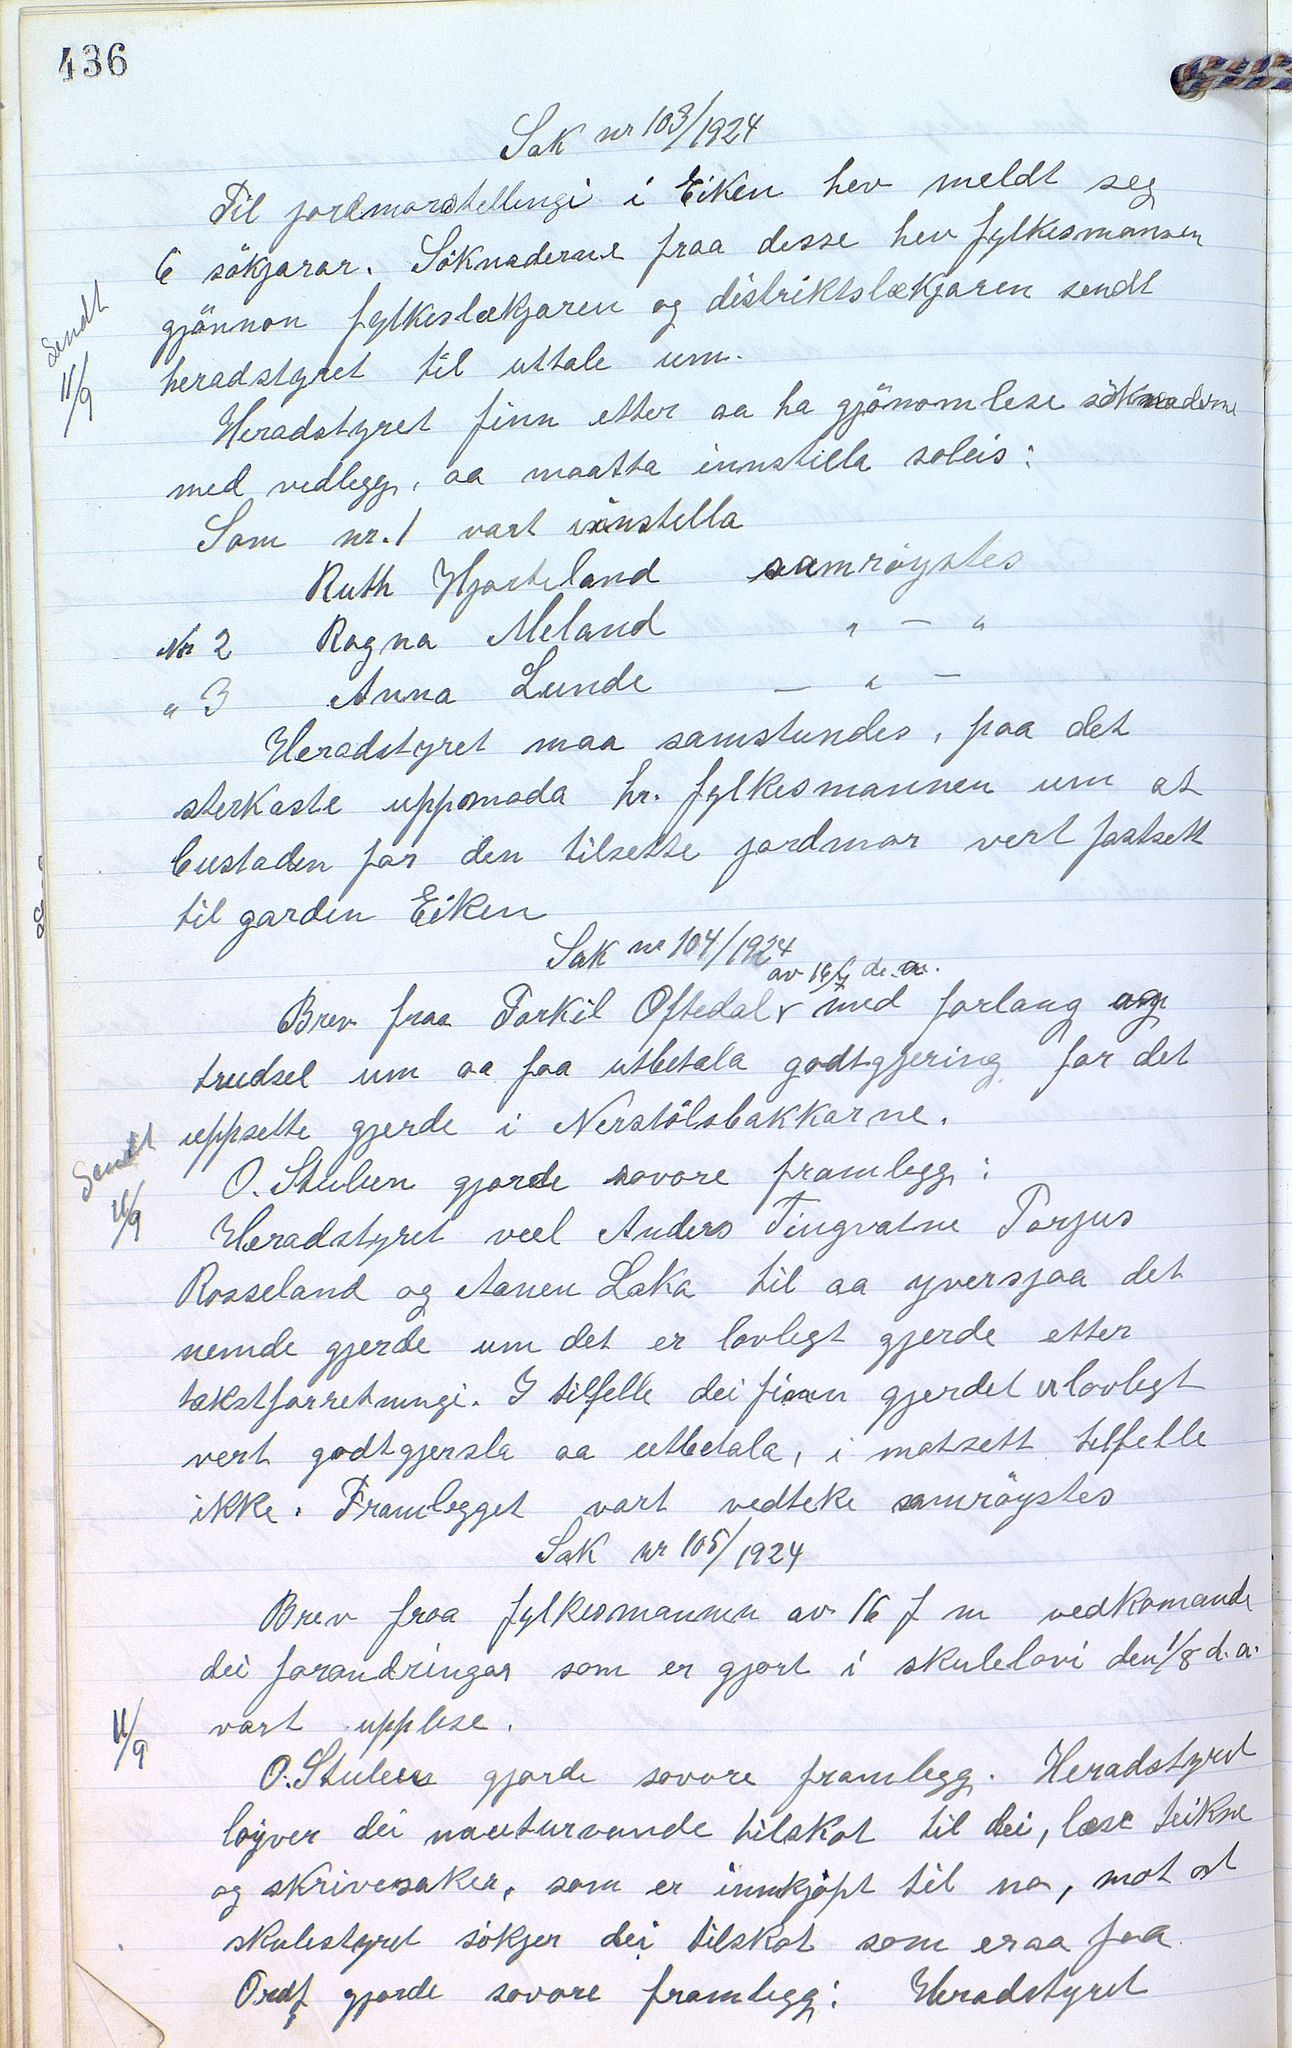 436
Sak nr 103/1924
Til jordmorstellingi i Eiken hev meldt seg
6 sökjarar. Söknaderne fraa desse hev fylkesmannen
gjönnon fylkeslækjaren og distriktslækjaren sendt
heradstyret til uttale um.
Sendt
11/9
Heradstyret finn etter aa ha gjönomlese söknaderne
med vedlegg, aa maatta innstilla soleis:
Som nr. 1 vart innstella
Ruth Hjorteland samröystes
Nr 2 Ragna Meland " — "
" 3 Anna Lunde — " —
Heradstyret maa samstundes, paa det
sterkaste uppmoda hr. fylkesmannen um at
bustaden for den tilsette jordmor vert fastsett
til garden Eiken
Sak nr 104/1924
av 16/7 d. a.
Brev fraa Torkil Oftedal v med forlang og
trudsel um aa faa utbetala godtgjering for det
uppsette gjerde i Nerstölsbakkarne.
Sendt
11/9
O. Stulen gjorde sovore framlegg:
Heradstyret vel Anders Tingvatne Torjus
Rosseland og Aanen Laka til aa yversjaa det
nemde gjerde um det er lovlegt gjerde etter
takstforretningi. I tilfelle dei finn gjerdet ulovlegt
vert godtgjersla aa utbetala, i motsett tilfelle
ikke. Framlegget vart vedteke samröystes
Sak nr 105/1924
Brev fraa fylkesmannen av 16 f m vedkomande
dei forandringar som er gjort i skulelovi den 1/8 d. a.
11/9
vart upplese.
O. Stuleen gjorde sovore framlegg. Heradstyret
löyver dei nauturvande tilskot til dei, lese teikne
og skrivesaker, som er innkjöpt til no, mot at
skulestyret sökjer dei tilskot som er aa faa.
Ordf gjorde sovore framlegg: Heradstyret